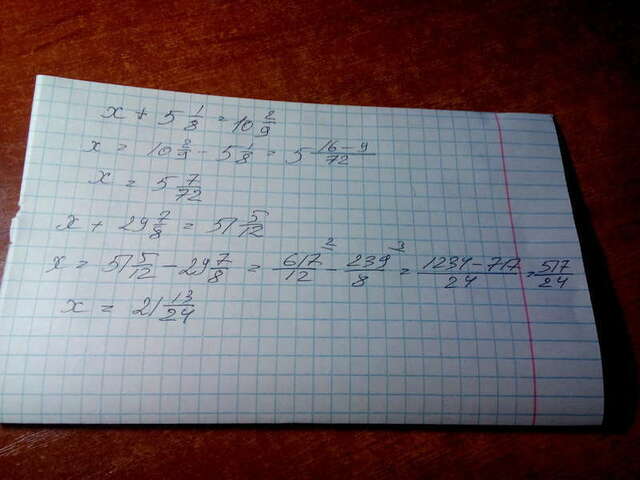 x + 5 1/8 = 10 2/9
x = 10 2/9 - 5 1/8 = 5 16-9/72
x = 5 7/72
x + 29 7/8 = 51 5/12
x = 51 5/12 - 29 7/8 = 617/12 ² - 239/8 ³ = 1234-717/24 = 517/24
x = 21 13/24